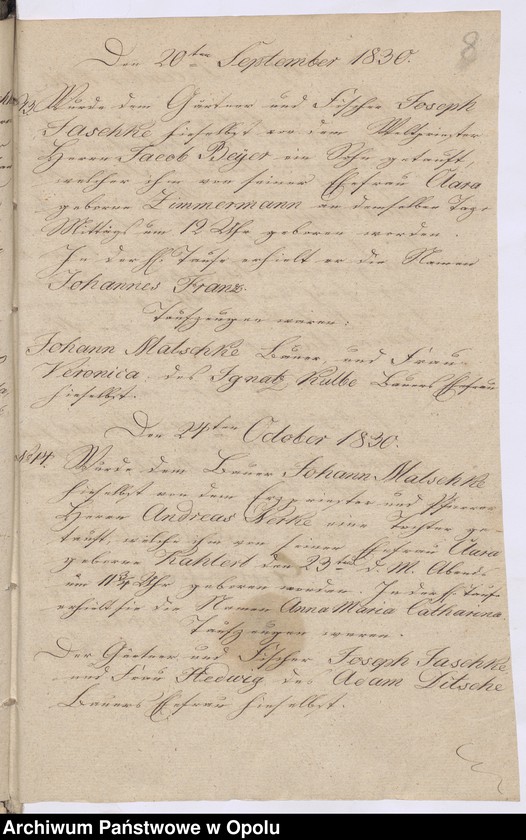 8
Den 20ten September 1830.
13. Wurde dem Gärtner und Fischer Joseph
Jaschke hieselbst von dem Weltpriester
Herrn Jacob Beÿer ein Sohn getauft,
welcher ihm von seiner Ehefrau Clara
geborne Zimmermann an demselben Tage
Mittags um 12 Uhr geboren worden.
In der hl. Taufe erhielt er die Namen
Johannes Franz.
Taufzeugen waren:
Johann Matschke Bauer, und Frau
Veronica, des Ignatz Kulbe Bauers Ehefrau
hieselbst.
Den 24ten October 1830.
No 14. Wurde dem Bauer Johann Matschke
hieselbst von dem Erzpriester und Pfarrer
Herrn Andreas eine Tochter ge-
tauft, welche ihm von seiner Ehefrau Clara
geborne Kahlert den 23ten d. M. Abends
um 11 3/4 Uhr geboren worden. In der h. Taufe
erhielt sie die Namen Anna Maria Catharina.
Taufzeugen waren.
Der Gärtner und Fischer Joseph Jaschke,
und Frau Hedwig des Adam Ditsche
Bauers Ehefrau hieselbst.
Archiwum Państwowe w Opolu